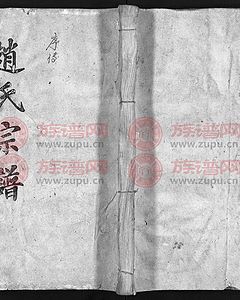 趙氏宗譜
序傳
族谱网
www.zupu.cn
族谱网
www.zupu.cn
族谱网
www.zupu.cn
族谱网
www.zupu.cn